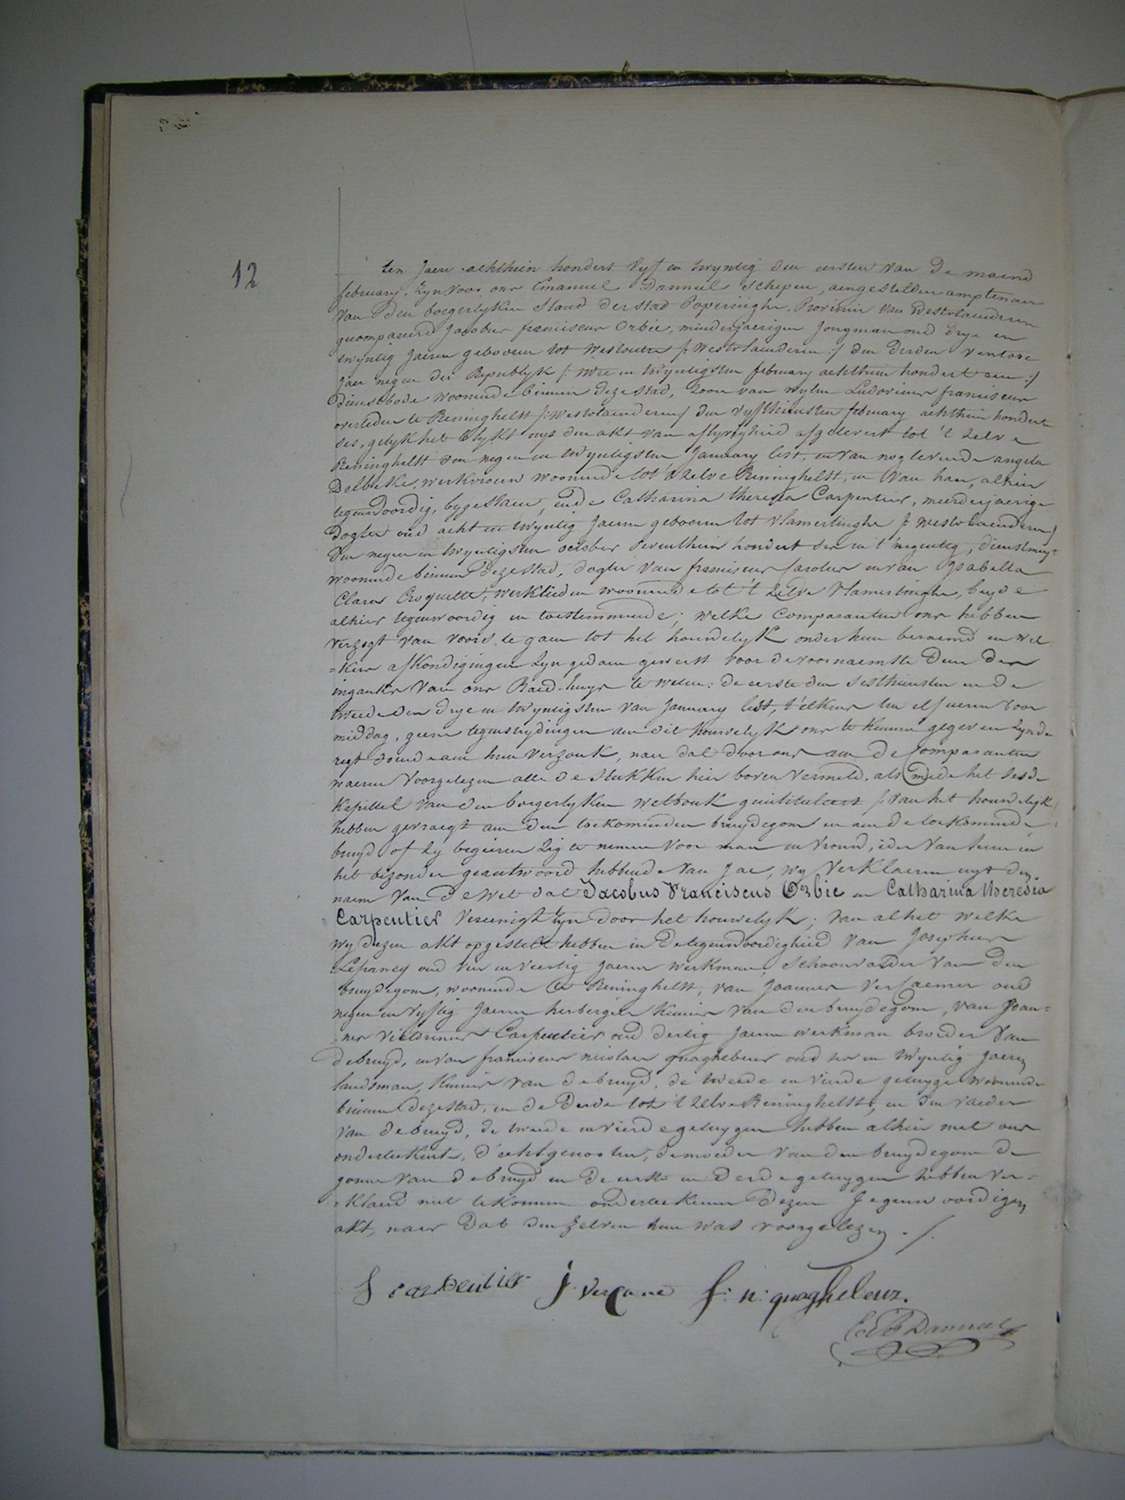 12
ten Jaere achthien hondert vyf en twyntig den eersten van de maend
february, zyn voor ons Emanuel Danneel schepen, aengestelden amptenaer
van den borgerlyken stand der stad Poperinghe, Provincie van Westvlaenderen
gecompareerd Jacobus franciscus Orbie, minderjaerigen Jongman oud drye en
twyntig Jaeren gebooren tot Westouter /: Westvlaenderen :/ den derden ventose
Jaer negen der Republyk /: twee en twyntigsten february achthien hondert een :/
dienstbode woonende binnen deze stad, zoon van wylen Ludovicus franciscus
overleden te Reninghelst /: Westvlaenderen :/ den vyfthiensten february achthien hondert
ses, gelyk het blykt uyt den akt van aflyvigheid afgelevert tot 't zelve
Reninghelst den negen en twyntigsten January lest, en van nog levende angela
Delbeke, werkvrouw woonende tot 't zelve Reninghelst, en van haer, alhier
tegenwoordig, bygestaen, ende Catharina Theresia Carpentier, meerderjaerige
dogter oud acht en twyntig Jaeren gebooren tot Vlamertinghe /: Westvlaenderen :/
den negen en twyntigsten october seventhien hondert ses en 't negentig, dienstmeyt
woonende binnen deze stad, dogter van franciscus Carolus en van Isabella
Clara Croquette, werklieden woonende tot 't zelve Vlamertinghe, beyde
alhier tegenwoordig en toestemmende; welke comparanten ons hebben
verzogt van voords te gaen tot het houwelyk onder hun beraemd en wel-
-kers afkondigingen zyn gedaen geweest voor de voornaemste deur der
ingank van ons Raed-huys te weten: de eerste den sesthiensten en de
tweede den drye en twyntigsten van January lest, t'elkens ten elf ueren voor
middag, geene tegenstrydingen aen dit houwelyk ons te kennen gegeven zynde
regt doende aen hun verzoek, naer dat door ons aen de comparanten
waeren voorgelezen alle de stukken hier boven vermeld, als mede het sesde
Kapittel van den borgerlyken wetboek geintituleert /: van het houwelyk :/
hebben gevraegt aen den toekomenden bruydegom en aen de toekomende
bruyd of zy begeeren zig te nemen voor man en vrouw, ider van hun in
het bezonder geantwoord hebbende van Jae, wy verklaeren uyt den
naem van de wet dat Jacobus Franciscus Orbie en Catharina Theresia
Carpentier vereenigt zyn door het houwelyk; van al het welke
wy dezen akt opgestelt hebben in de tegenwoordigheid van Josephus
Lefrancq oud vier en veertig Jaeren werkman, schoonvader van den
bruydegom, woonende te Reninghelst, van Joannes Vercamer oud
negen en vyftig Jaeren herbergier kennis van den bruydegom, van Joan-
nes Veldanus Carpentier oud dertig Jaeren werkman broeder van
de bruyd, en van franciscus nicolaus quaghebeur oud ses en twyntig Jaeren
landsman, kennis van de bruyd, de tweede en vierde getuyge woonende
binnen deze stad, en de derde tot 't zelve Reninghelst, en den vaeder
van de bruyd, de tweede en vierde getuygen hebben alhier met ons
onderteekent, d'echtgenooten, de moeder van den bruydegom de
gonne van de bruyd en de eerste en derde getuygen hebben ver-
-klaerd niet te konnen onderteekenen dezen Jegenwoordigen
akt, naer dat den zelven hun was voorgelezen ./.
f carpentier j. vercame f: n: quaghebeur.
E Danneel